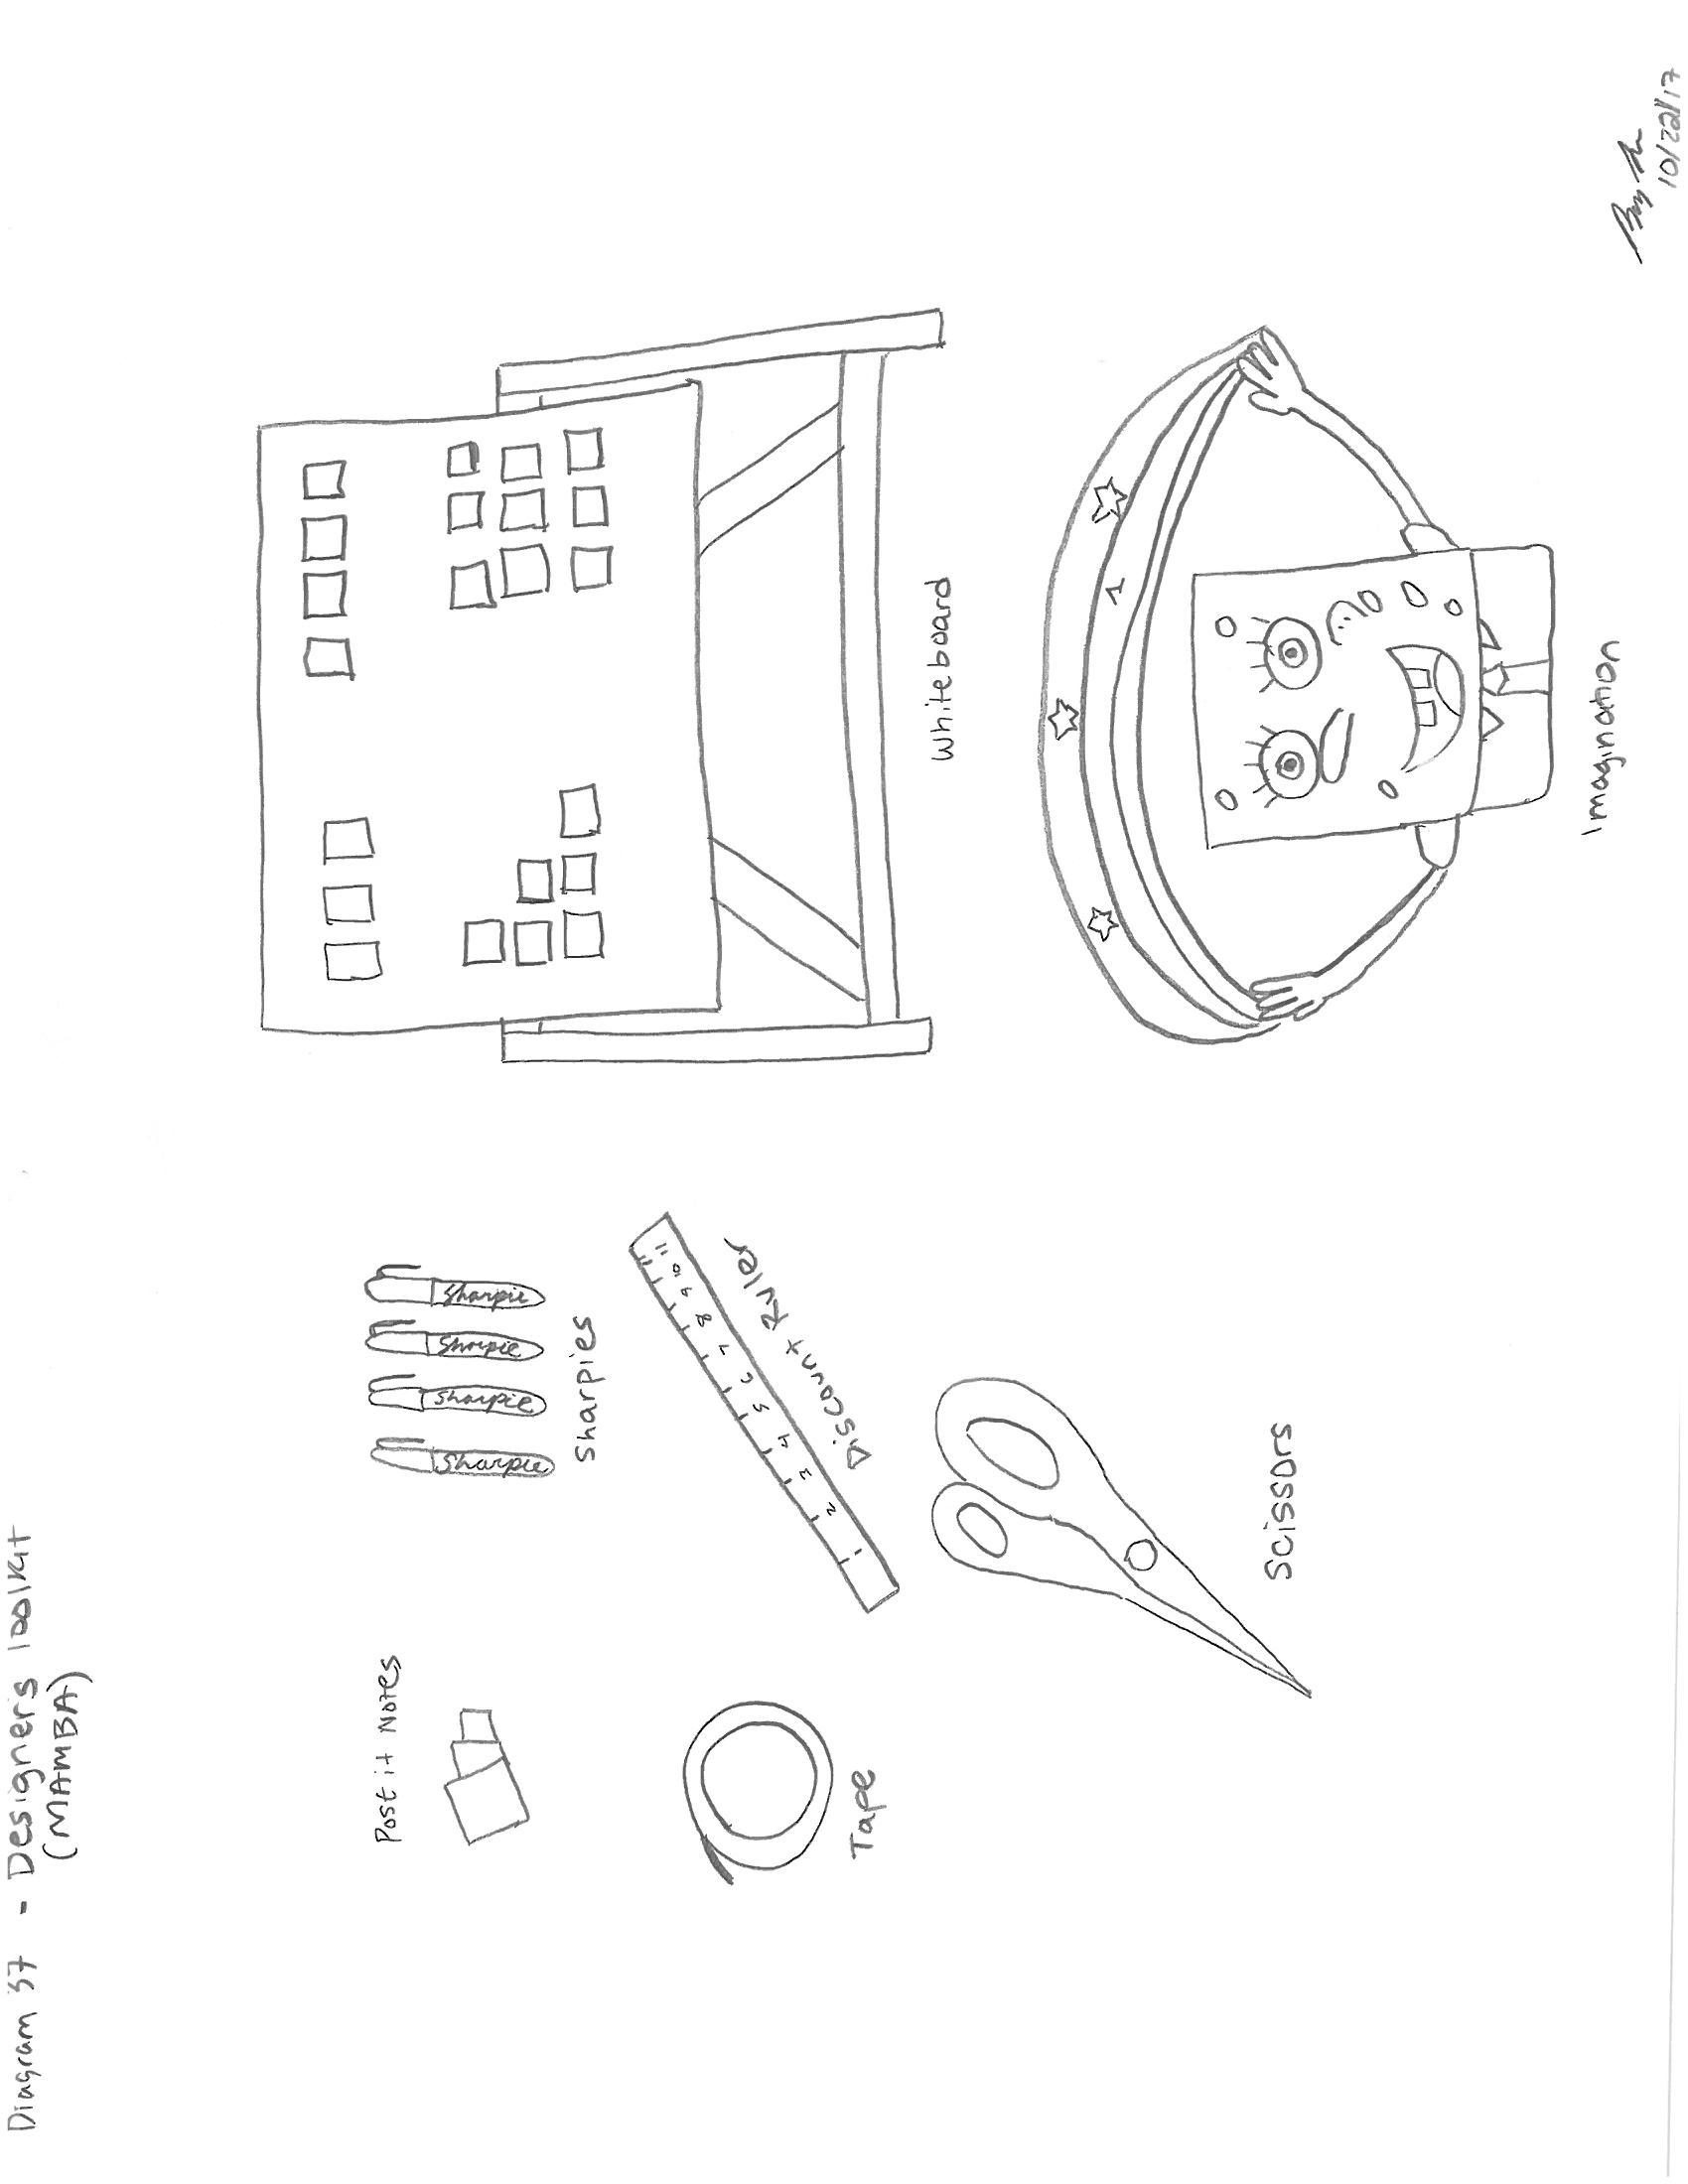 Diagram 37 - Designers Toolkit
(MAMBA)
Post it Notes
Sharpie
Sharpie
Sharpie
Sharpie
Sharpies
Tape
1 2 3 4 5 6 7 8 9 10 11
Discount Ruler
Scissors
Whiteboard
Imagination
10/22/17